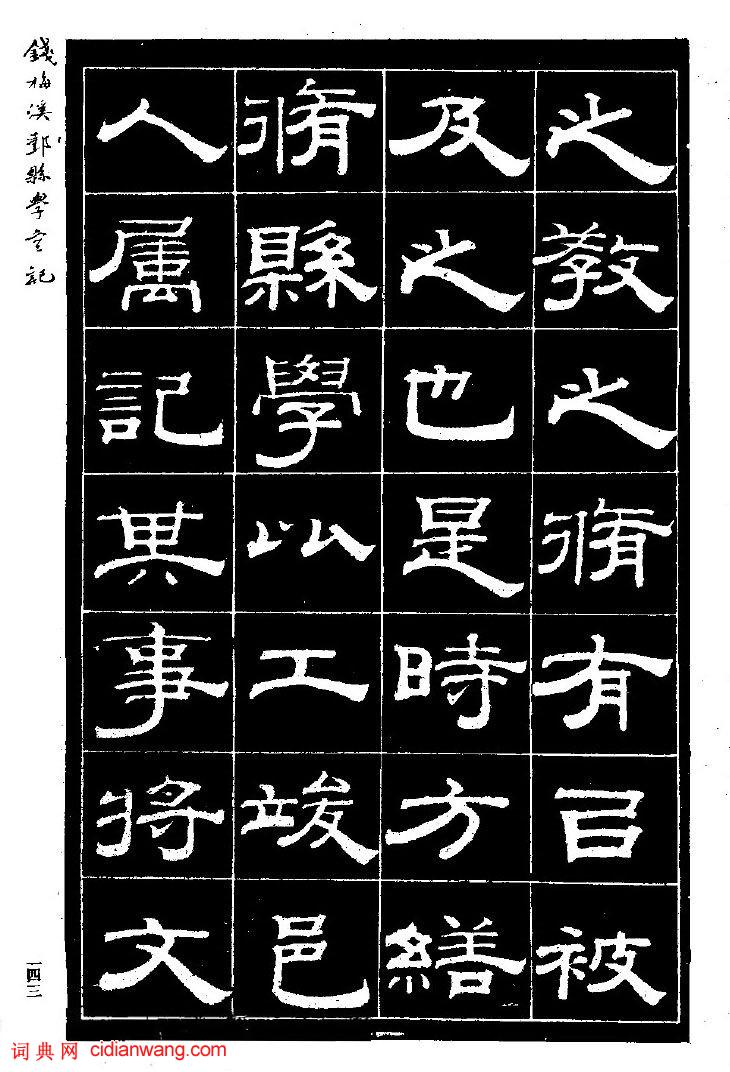 之教之脩有㠯被
及之也是時方繕
脩縣學以工竣邑
人属記其事將文
錢梅溪鄞縣學宮記
一四三
词典网 cidianwang.com